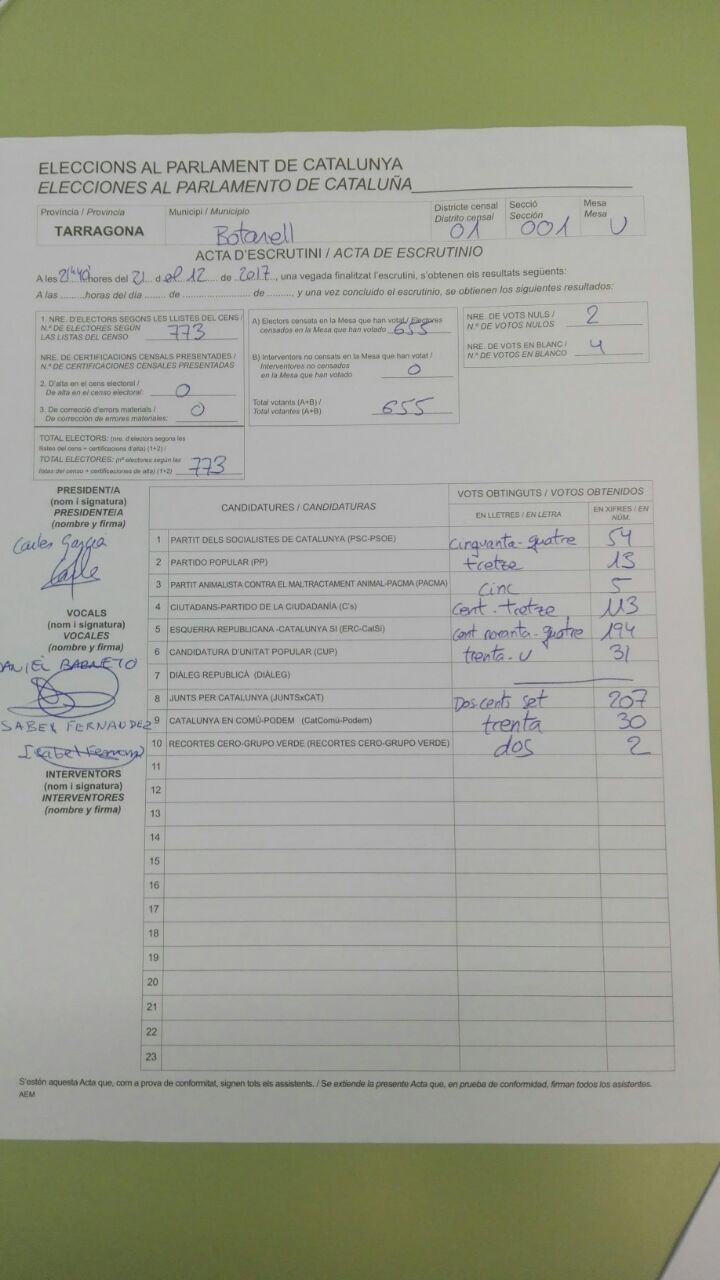 ELECCIONS AL PARLAMENT DE CATALUNYA
ELECCIONES AL PARLAMENTO DE CATALUÑA
Província / Provincia
TARRAGONA
Municipi / Municipio
Botarell
Districte censal
Distrito censal
01
Secció
Sección
001
Mesa
Mesa
U
ACTA D'ESCRUTINI / ACTA DE ESCRUTINIO
A les 21h40' hores del 21 d el 12 de 2017, una vegada finalitzat l'escrutini, s'obtenen els resultats següents:
A las ........horas del día ....... de ....................... de ........, y una vez concluido el escrutinio, se obtienen los siguientes resultados:
1. NRE. D'ELECTORS SEGONS LES LLISTES DEL CENS /
N.º DE ELECTORES SEGÚN
LAS LISTAS DEL CENSO 773
NRE. DE CERTIFICACIONS CENSALS PRESENTADES /
N.º DE CERTIFICACIONES CENSALES PRESENTADAS
2. D'alta en el cens electoral /
De alta en el censo electoral: 0
3. De correcció d'errors materials /
De corrección de errores materiales: 0
TOTAL ELECTORS: (nre. d'electors segons les
llistes del cens + certificacions d'alta) (1+2) /
TOTAL ELECTORES: (nº electores según las
listas del censo + certificaciones de alta) (1+2) 773
A) Electors censats en la Mesa que han votat / Electores
censados en la Mesa que han votado 655
B) Interventors no censats en la Mesa que han votat /
Interventores no censados
en la Mesa que han votado 0
Total votants (A+B) /
Total votantes (A+B) 655
NRE. DE VOTS NULS /
N.º DE VOTOS NULOS 2
NRE. DE VOTS EN BLANC /
N.º DE VOTOS EN BLANCO 4
PRESIDENT/A
(nom i signatura)
PRESIDENTE/A
(nombre y firma)
Carles Garcia
VOCALS
(nom i signatura)
VOCALES
(nombre y firma)
DANIEL BARNETO
ISABEL FERNANDEZ
INTERVENTORS
(nom i signatura)
INTERVENTORES
(nombre y firma)
CANDIDATURES / CANDIDATURAS
VOTS OBTINGUTS / VOTOS OBTENIDOS
EN LLETRES / EN LETRA
EN XIFRES / EN NÚM.
1 PARTIT DELS SOCIALISTES DE CATALUNYA (PSC-PSOE) Cinquanta-quatre 54
2 PARTIDO POPULAR (PP) tretze 13
3 PARTIT ANIMALISTA CONTRA EL MALTRACTAMENT ANIMAL-PACMA (PACMA) cinc 5
4 CIUTADANS-PARTIDO DE LA CIUDADANÍA (C's) Cent-tretze 113
5 ESQUERRA REPUBLICANA-CATALUNYA SÍ (ERC-CatSí) Cent noranta-quatre 194
6 CANDIDATURA D'UNITAT POPULAR (CUP) trenta-u 31
7 DIÀLEG REPUBLICÀ (DIÀLEG)
8 JUNTS PER CATALUNYA (JUNTSxCAT) Dos cents set 207
9 CATALUNYA EN COMÚ-PODEM (CatComú-Podem) trenta 30
10 RECORTES CERO-GRUPO VERDE (RECORTES CERO-GRUPO VERDE) dos 2
11
12
13
14
15
16
17
18
19
20
21
22
23
S'estén aquesta Acta que, com a prova de conformitat, signen tots els assistents. / Se extiende la presente Acta que, en prueba de conformidad, firman todos los asistentes.
AEM